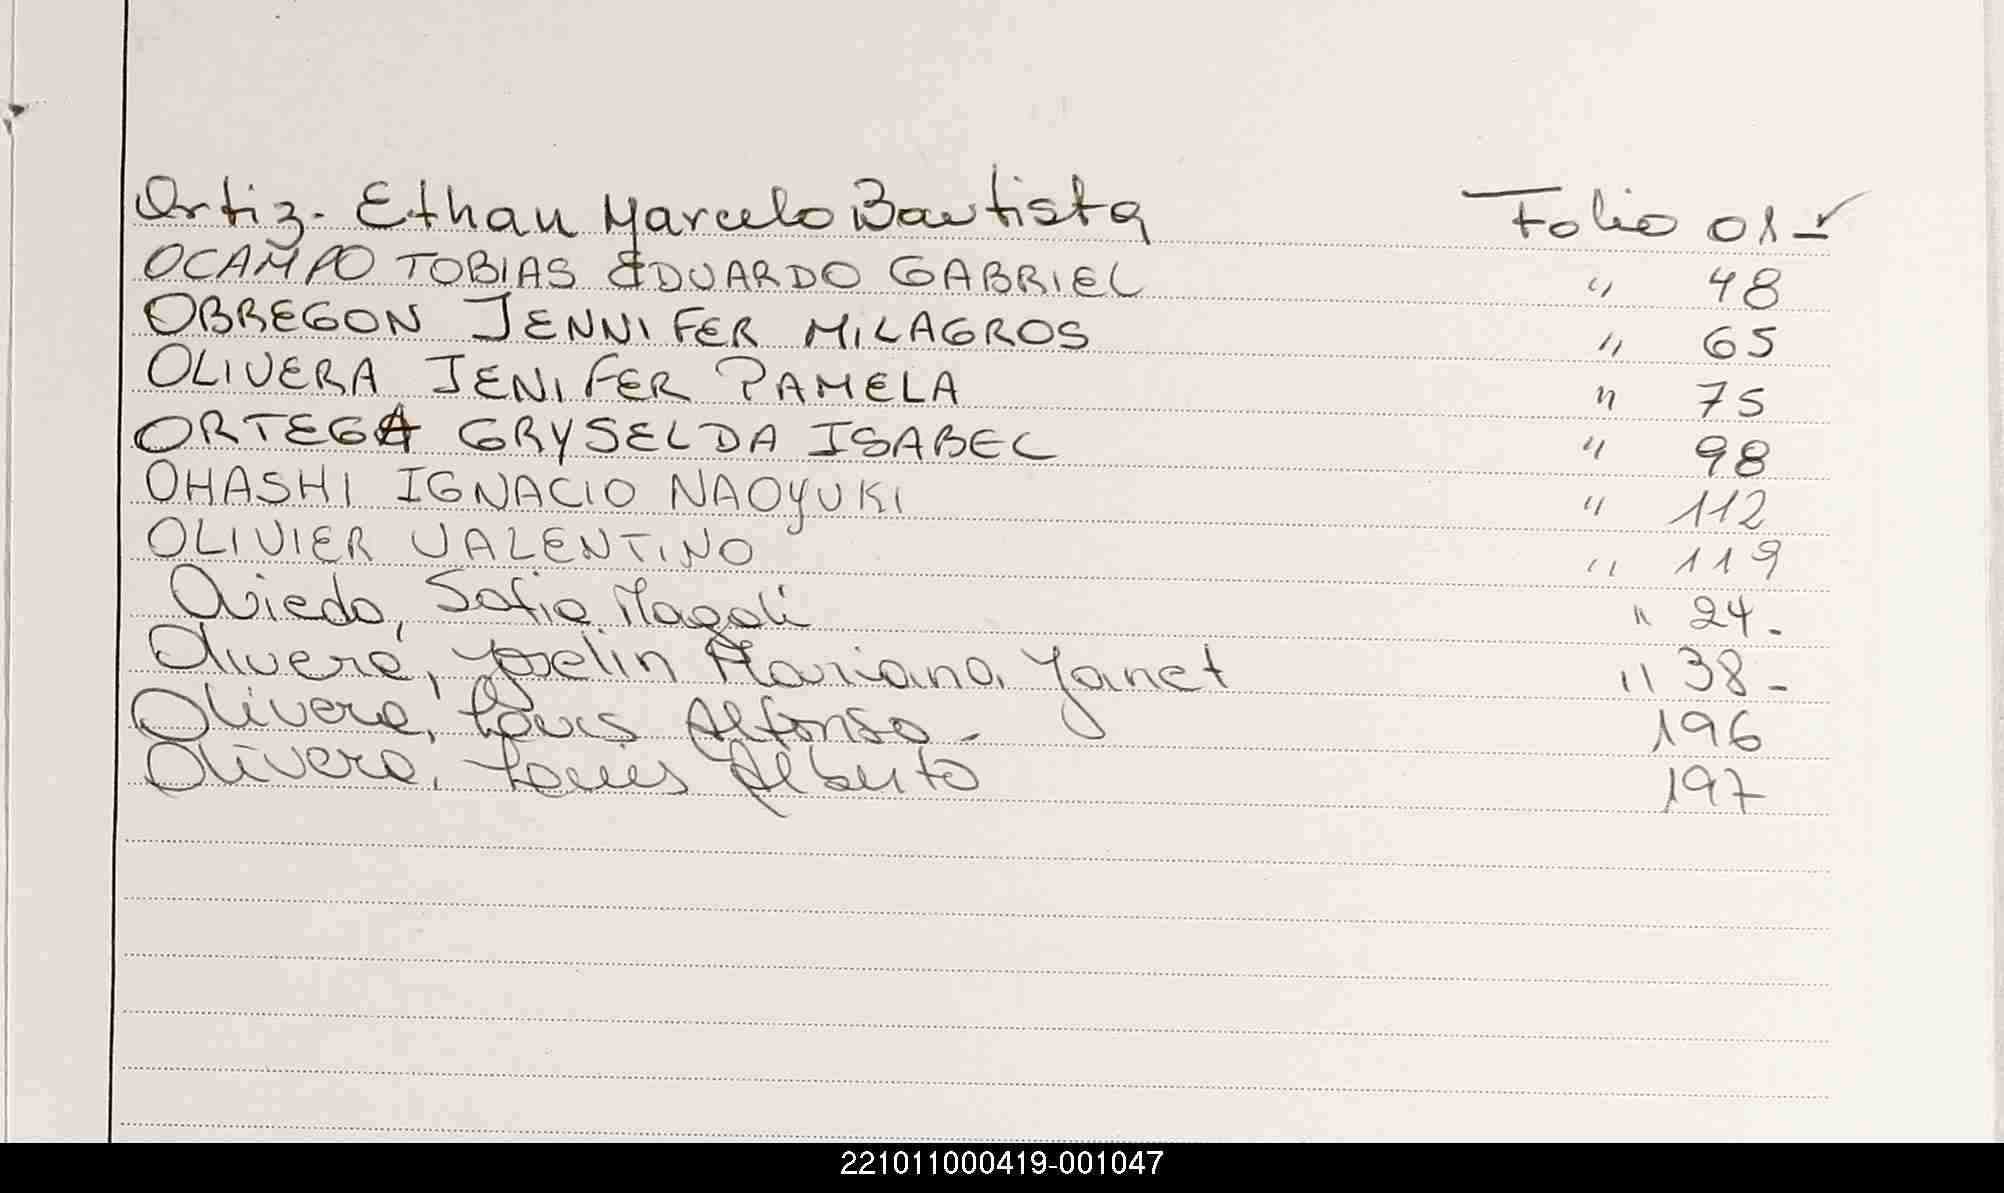 Ortiz. Ethan Marcelo Bautista Folio 01-✓
OCAMPO TOBIAS EDUARDO GABRIEL " 48
OBREGON JENNIFER MILAGROS " 65
OLIVERA JENIFER PAMELA " 75
ORTEGA GRYSELDA ISABEL " 98
OHASHI IGNACIO NAOYUKI " 112
OLIVIER VALENTINO " 119
Oviedo, Sofia Magali " 24-
Olivera, Yoselin Mariana Yanet " 38-
Olivera, Alfonso- 196
Olivera, Alberto 197
221011000419-001047